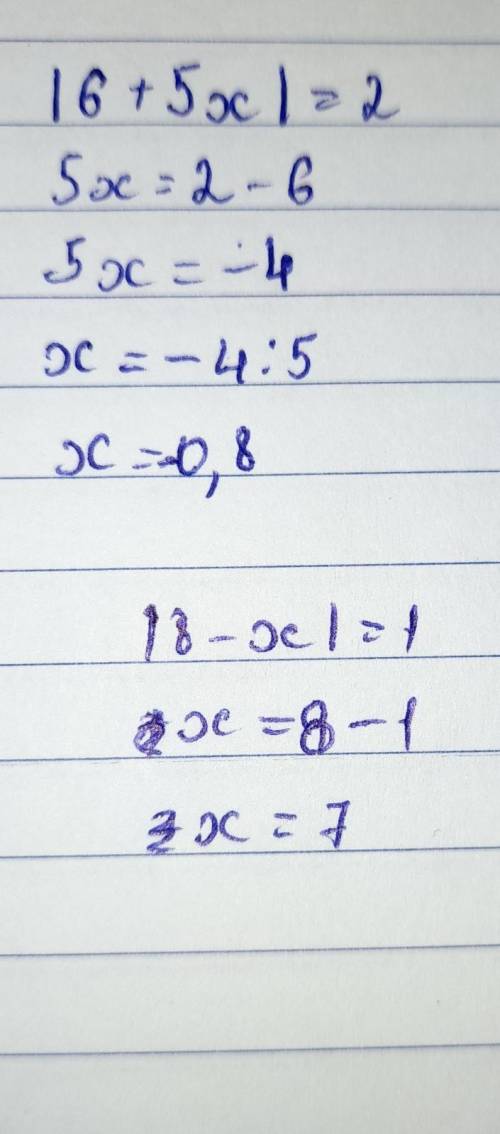 |6 + 5x| = 2
5x = 2 - 6
5x = -4
x = -4 : 5
x = -0,8
|8 - x| = 1
x = 8 - 1
x = 7